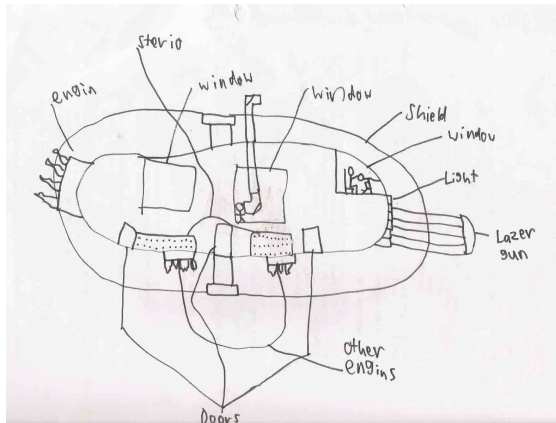 sterio
window
window
engin
shield
window
Light
Lazer
gun
other
engins
Doors